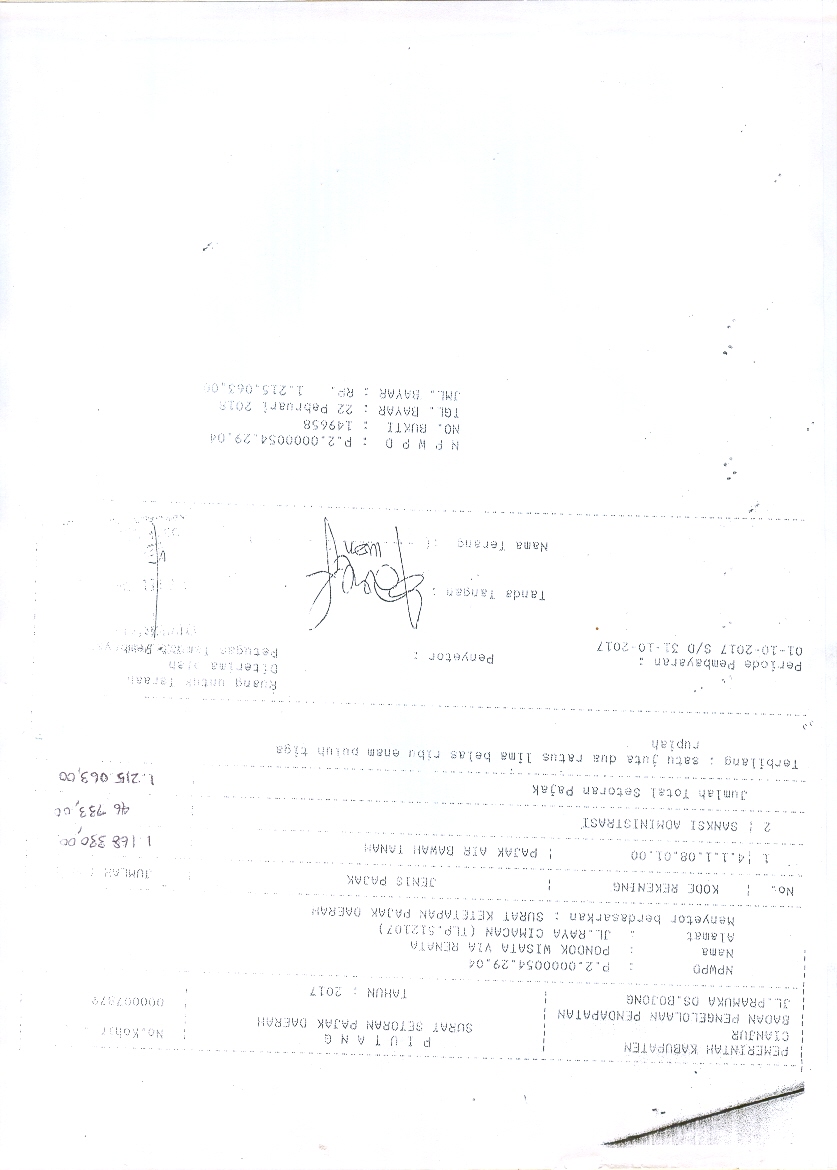 PEMERINTAH KABUPATEN
CIANJUR
BADAN PENGELOLAAN PENDAPATAN
JL.PRAMUKA DS.BOJONG
P I U T A N G
SURAT SETORAN PAJAK DAERAH
TAHUN : 2017
No.Kohir
000007879
NPWPD : P.2.0000054.29.04
Nama : PONDOK WISATA VIA RENATA
Alamat : JL.RAYA CIMACAN (TLP.512107)
Menyetor berdasarkan : SURAT KETETAPAN PAJAK DAERAH
No. | KODE REKENING | JENIS PAJAK | JUMLAH
1 |4.1.1.08.01.00 | PAJAK AIR BAWAH TANAH 1.168.330,00
2 | SANKSI ADMINISTRASI 46 733,00
Jumlah Total Setoran Pajak 1.215.063,00
Terbilang : satu juta dua ratus lima belas ribu enam puluh tiga
rupiah
Periode Pembayaran :
01-10-2017 S/D 31-10-2017
Penyetor :
Tanda Tangan :
Nama Terang :
Ruang untuk Teraan
Diterima oleh
Petugas
N P W P D : P.2.0000054.29.04
NO. BUKTI : 149658
TGL. BAYAR : 22 Pebruari 2018
JML. BAYAR : RP. 1.215.063,00